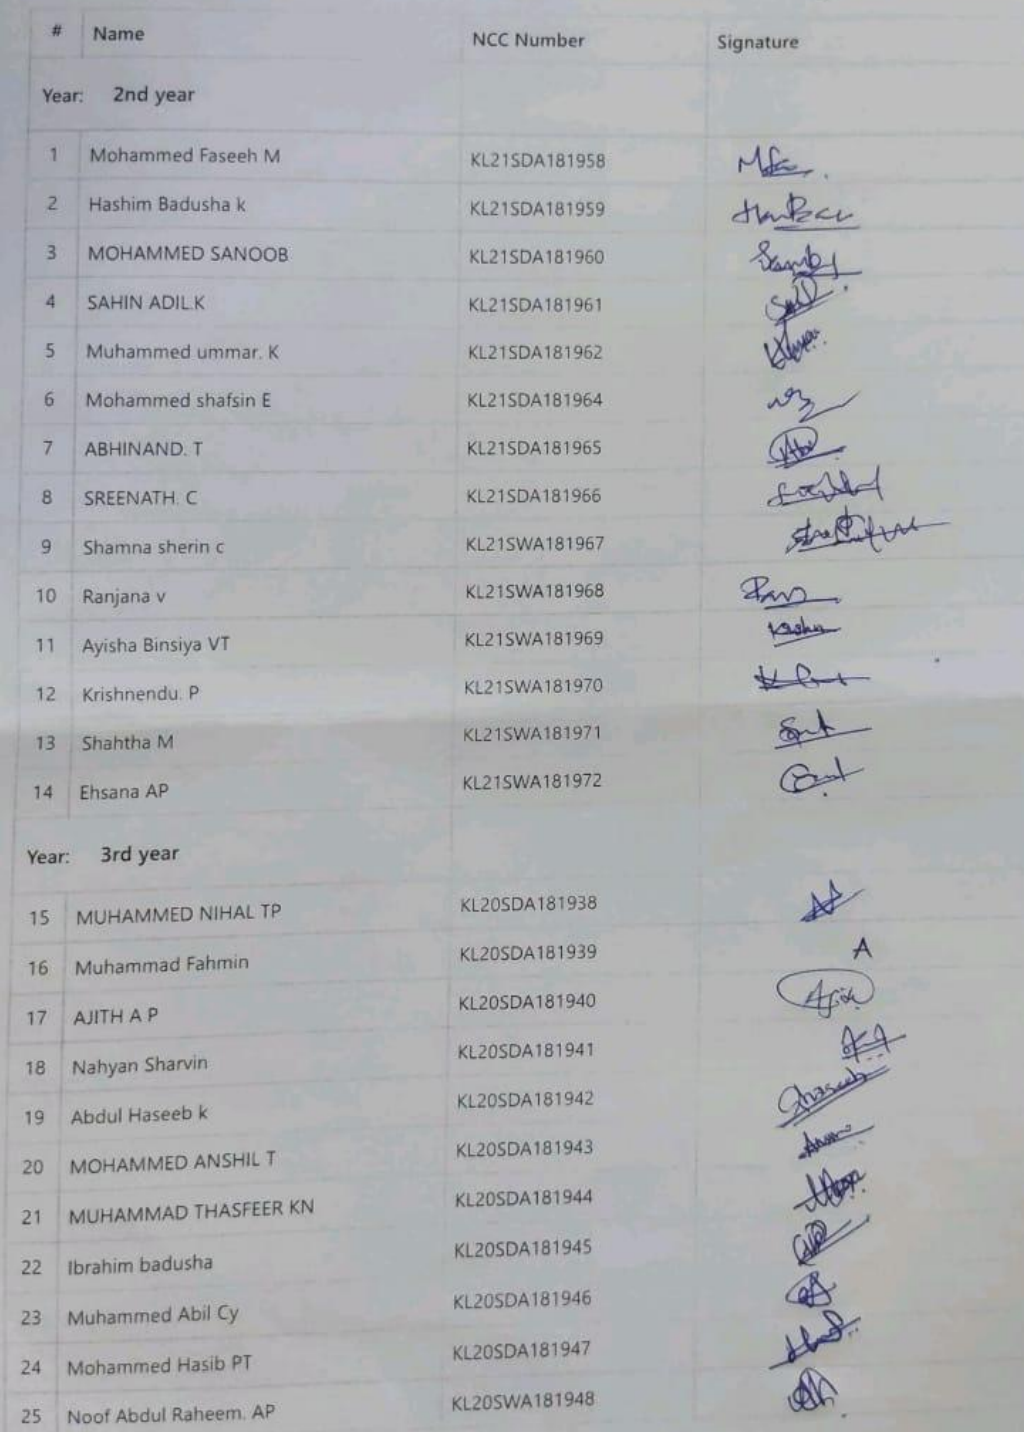 # Name NCC Number Signature
Year: 2nd year
1 Mohammed Faseeh M KL21SDA181958
2 Hashim Badusha k KL21SDA181959
3 MOHAMMED SANOOB KL21SDA181960
4 SAHIN ADIL.K KL21SDA181961
5 Muhammed ummar. K KL21SDA181962
6 Mohammed shafsin E KL21SDA181964
7 ABHINAND. T KL21SDA181965
8 SREENATH. C KL21SDA181966
9 Shamna sherin c KL21SWA181967
10 Ranjana v KL21SWA181968
11 Ayisha Binsiya VT KL21SWA181969
12 Krishnendu. P KL21SWA181970
13 Shahtha M KL21SWA181971
14 Ehsana AP KL21SWA181972
Year: 3rd year
15 MUHAMMED NIHAL TP KL20SDA181938
16 Muhammad Fahmin KL20SDA181939 A
17 AJITH A P KL20SDA181940
18 Nahyan Sharvin KL20SDA181941
19 Abdul Haseeb k KL20SDA181942
20 MOHAMMED ANSHIL T KL20SDA181943
21 MUHAMMAD THASFEER KN KL20SDA181944
22 Ibrahim badusha KL20SDA181945
23 Muhammed Abil Cy KL20SDA181946
24 Mohammed Hasib PT KL20SDA181947
25 Noof Abdul Raheem. AP KL20SWA181948